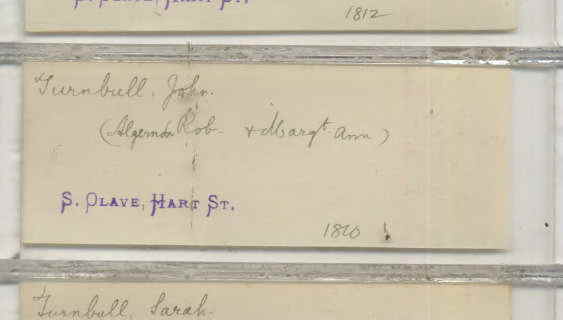 S. OLAVE, HART ST.
1812
Turnbull, John.
(Algernon Rob. + Margt Ann)
S. OLAVE, HART ST.
1810
Turnbull, Sarah.